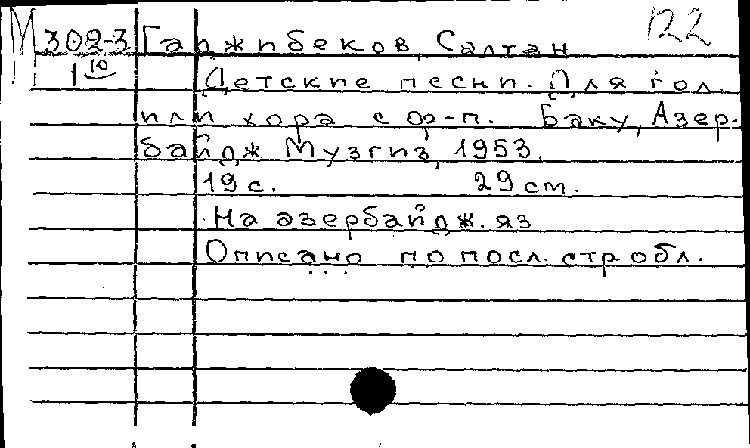 М 302-3 Гаджибеков, Салтан 122
1 10 Детские песни. Для гол.
или хора с ф-п. Баку, Азер-
байдж Музгиз, 1953.
19 с. 29 cm.
На азербайдж. яз
Описано по посл. стр обл.